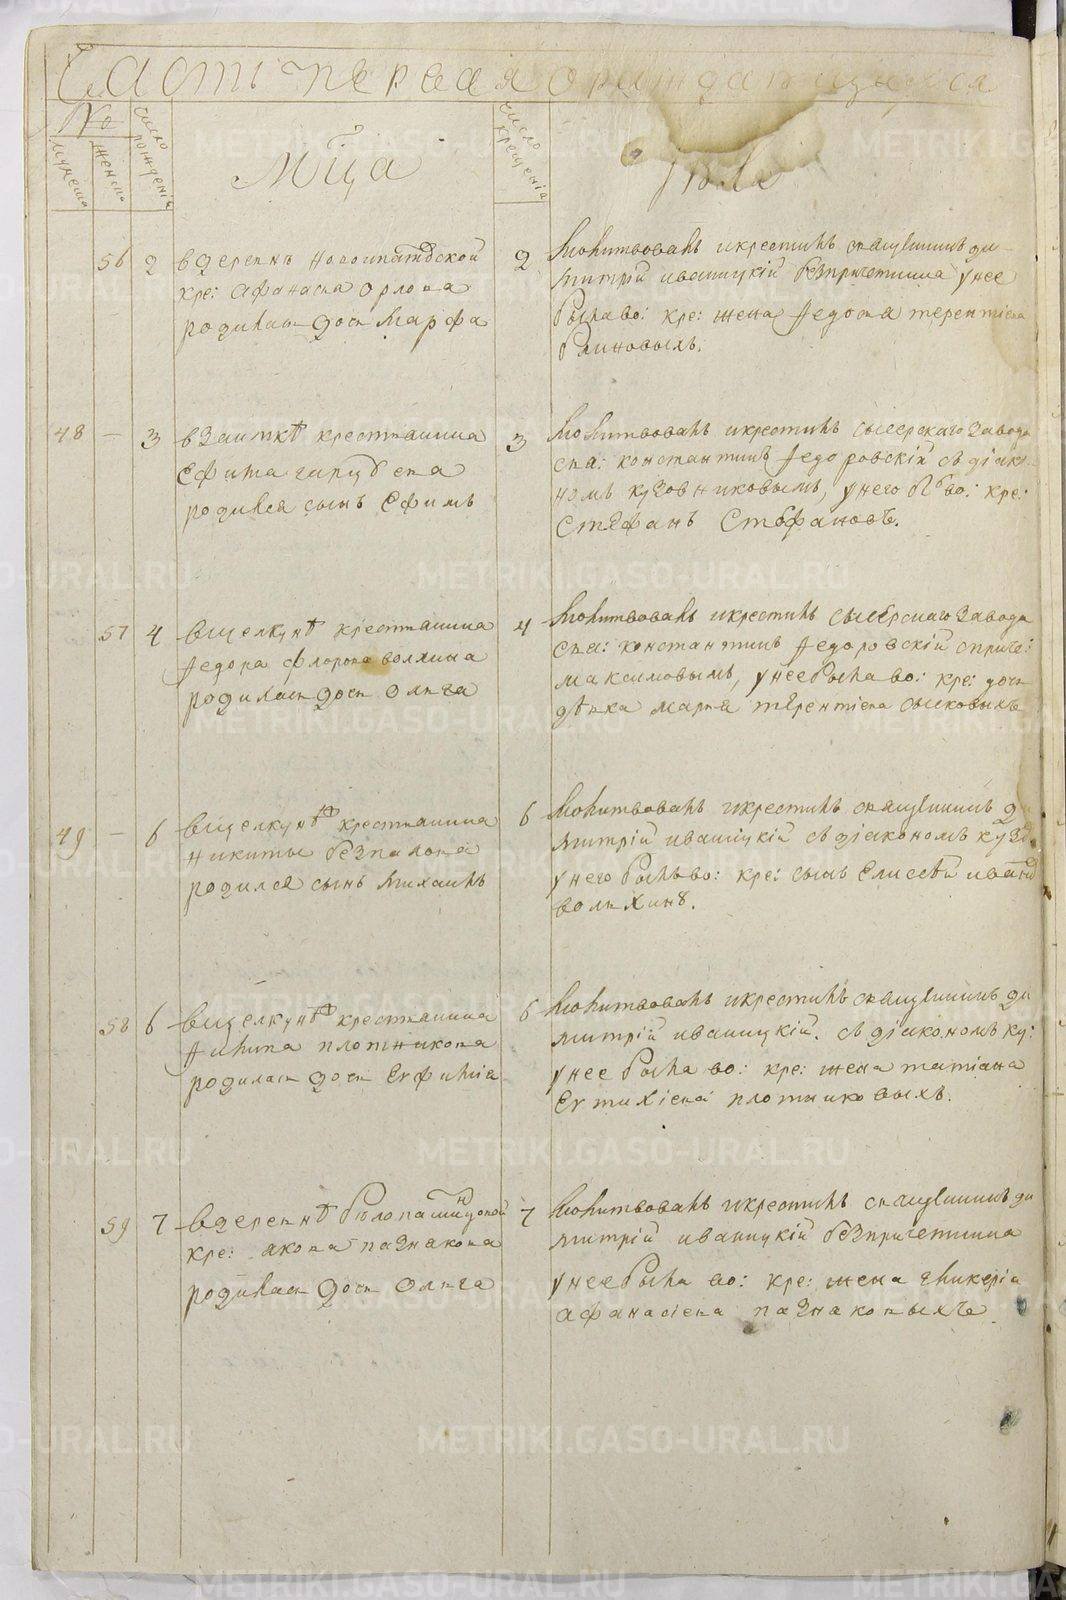 Часть первая о раждающихся
№
мужеска
женска
число рожденiя
Мца
число крещенiя
Iюля
56
2
в деревне
кре: Афанасiа Орлова
родилась дочь Марфа
2
Молитвовалъ и крестилъ священникъ Ди
митрiй Иваницкiй без причетника у нее
была во: кре: жена Федосiа Терентiева
Блиновыхъ.
48
–
3
в Заимке крестьянина
Ефима
родился сынъ Ефимъ
3
Молитвовалъ и крестилъ Сысерскаго завода
свя: Константинъ Федоровскiй съ дiако
номъ Кузовниковымъ, у него былъ во: кре:
Стефанъ Стефановъ.
57
4
в Щелкуне крестьянина
Федора Флорова Волхина
родилась дочь Ольга
4
Молитвовалъ и крестилъ Сысерскаго завода
свя: Константинъ Федоровскiй с приче:
Максимовымъ, у нее была во: кре: дочь
девка Марiя Терентiева
49
–
6
в Щелкуне крестьянина
Никиты Безпалова
родился сынъ Михаилъ
6
Молитвовалъ и крестилъ священникъ Ди
митрiй Иваницкiй съ дiакономъ Кузо
у него былъ во: кре: сынъ Елисей Иванов
Волхинъ.
58
6
в Щелкуне крестьянина
Филипа Плотникова
родилась дочь Евфимiа
6
Молитвовалъ и крестилъ священникъ Ди
митрiй Иваницкiй. съ дiакономъ Ку:
у нее была во: кре: жена Татiана
Евтихiева Плотниковыхъ.
59
7
в деревне
кре: Якова Пазнакова
родилась дочь Ольга
7
Молитвовалъ и крестилъ священникъ Ди
митрiй Иваницкiй без причетника
у нее была во: кре: жена Гликерiа
Афанасiева Пазнаковыхъ
METRIKI.GASO-URAL.RU